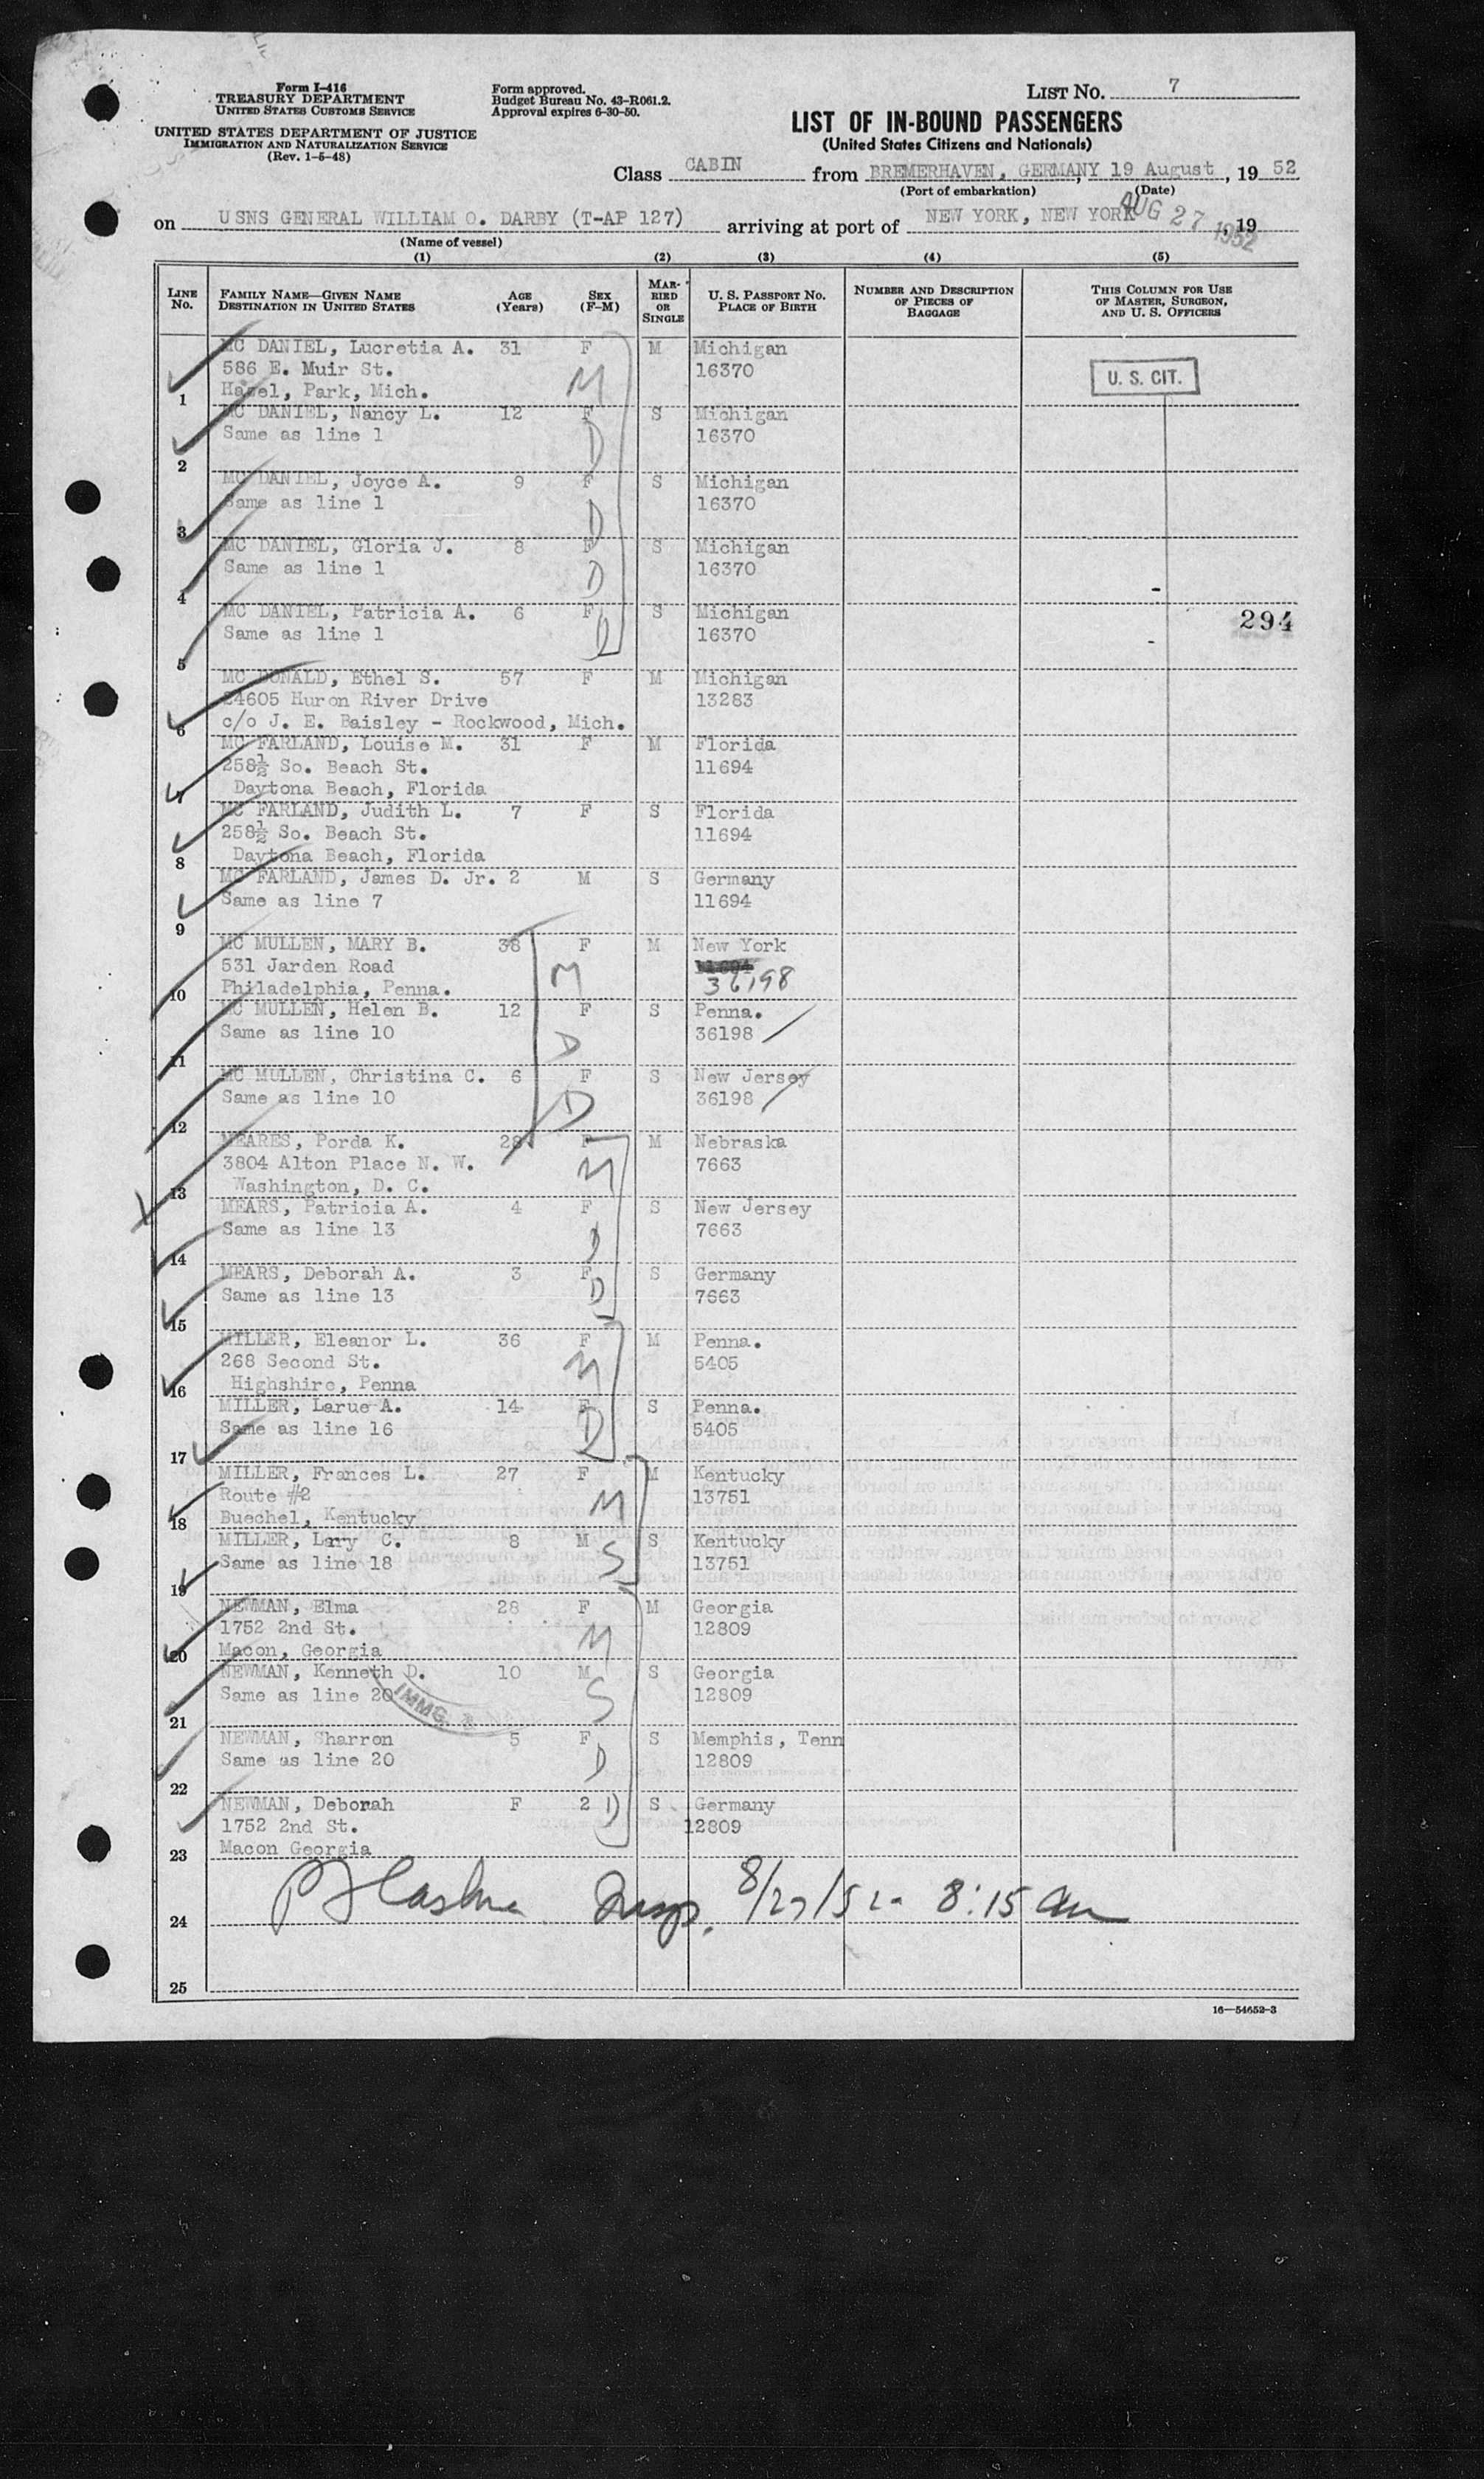 Form I-416
TREASURY DEPARTMENT
UNITED STATES CUSTOMS SERVICE
UNITED STATES DEPARTMENT OF JUSTICE
IMMIGRATION AND NATURALIZATION SERVICE
(Rev. 1-5-48)
Form approved.
Budget Bureau No. 43-R061.2.
Approval expires 6-30-50.
LIST NO. 7
LIST OF IN-BOUND PASSENGERS
(United States Citizens and Nationals)
Class CABIN from BREMERHAVEN, GERMANY, 19 August, 19 52
(Port of embarkation) (Date)
on USNS GENERAL WILLIAM O. DARBY (T-AP 127) arriving at port of NEW YORK, NEW YORK AUG 27 1952, 19
(Name of vessel)
(1) (2) (3) (4) (5)
LINE No. FAMILY NAME—GIVEN NAME DESTINATION IN UNITED STATES AGE (Years) SEX (F-M) MARRIED OR SINGLE U. S. PASSPORT NO. PLACE OF BIRTH NUMBER AND DESCRIPTION OF PIECES OF BAGGAGE THIS COLUMN FOR USE OF MASTER, SURGEON, AND U. S. OFFICERS
MC DANIEL, Lucretia A. 31 F M Michigan
586 E. Muir St. M 16370 U. S. CIT.
1 Hazel, Park, Mich.
MC DANIEL, Nancy L. 12 F S Michigan
Same as line 1 D 16370
2
MC DANIEL, Joyce A. 9 F S Michigan
Same as line 1 D 16370
3
MC DANIEL, Gloria J. 8 F S Michigan
Same as line 1 D 16370
4
MC DANIEL, Patricia A. 6 F S Michigan 294
Same as line 1 D 16370
5
MC DONALD, Ethel S. 57 F M Michigan
24605 Huron River Drive 13283
6 c/o J. E. Baisley - Rockwood, Mich.
MC FARLAND, Louise M. 31 F M Florida
258½ So. Beach St. 11694
7 Daytona Beach, Florida
MC FARLAND, Judith L. 7 F S Florida
258½ So. Beach St. 11694
8 Daytona Beach, Florida
MC FARLAND, James D. Jr. 2 M S Germany
Same as line 7 11694
9
MC MULLEN, MARY B. 38 F M New York
531 Jarden Road M 36198
10 Philadelphia, Penna.
MC MULLEN, Helen B. 12 F S Penna.
Same as line 10 D 36198
11
MC MULLEN, Christina C. 6 F S New Jersey
Same as line 10 D 36198
12
MEARES, Porda K. 28 F M Nebraska
3804 Alton Place N. W. M 7663
13 Washington, D. C.
MEARS, Patricia A. 4 F S New Jersey
Same as line 13 D 7663
14
MEARS, Deborah A. 3 F S Germany
Same as line 13 D 7663
15
MILLER, Eleanor L. 36 F M Penna.
268 Second St. M 5405
16 Highshire, Penna
MILLER, Larue A. 14 F S Penna.
Same as line 16 D 5405
17
MILLER, Frances L. 27 F M Kentucky
Route #2 M 13751
18 Buechel, Kentucky
MILLER, Lary C. 8 M S Kentucky
Same as line 18 S 13751
19
NEWMAN, Elma 28 F M Georgia
1752 2nd St. M 12809
20 Macon, Georgia
NEWMAN, Kenneth D. 10 M S Georgia
Same as line 20 S 12809
IMMG.
21
NEWMAN, Sharron 5 F S Memphis, Tenn
Same as line 20 D 12809
22
NEWMAN, Deborah F 2 D S Germany
1752 2nd St. 12809
23 Macon Georgia
Insp. 8/27/52 8:15 am
24
25
16—54652-3